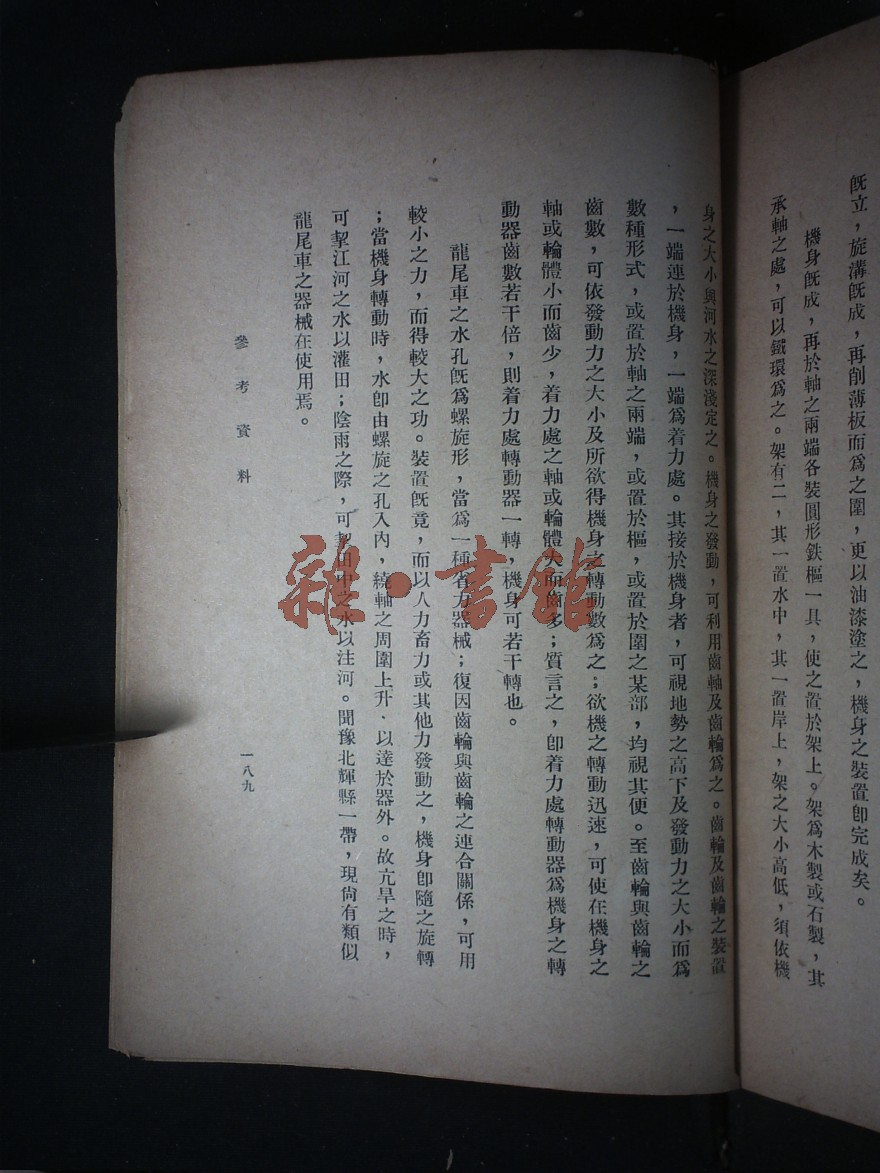 既立，旋溝既成，再削薄板而爲之圍，更以油漆塗之，機身之裝置卽完成矣。
機身既成，再於軸之兩端各裝圓形鉄樞一具，使之置於架上。架爲木製或石製，其
承軸之處，可以鐵環爲之。架有二，其一置水中，其一置岸上，架之大小高低，須依機
身之大小與河水之深淺定之。機身之發動，可利用齒軸及齒輪爲之。齒輪及齒輪之裝置
，一端連於機身，一端爲着力處。其接於機身者，可視地勢之高下及發動力之大小而爲
數種形式，或置於軸之兩端，或置於樞，或置於圍之某部，均視其便。至齒輪與齒輪之
齒數，可依發動力之大小及所欲得機身之轉動數爲之；欲機之轉動迅速，可使在機身之
軸或輪體小而齒少，着力處之軸或輪體大而齒多；質言之，卽着力處轉動器爲機身之轉
動器齒數若干倍，則着力處轉動器一轉，機身可若干轉也。
龍尾車之水孔既爲螺旋形，當爲一種省力器械；復因齒輪與齒輪之連合關係，可用
較小之力，而得較大之功。裝置既竟，而以人力畜力或其他力發動之，機身卽隨之旋轉
；當機身轉動時，水卽由螺旋之孔入內，繞軸之周圍上升、以達於器外。故亢旱之時，
可挈江河之水以灌田；陰雨之際，可挈田中之水以注河。聞豫北輝縣一帶，現尙有類似
龍尾車之器械在使用焉。
參考資料
一八九
雜·書館